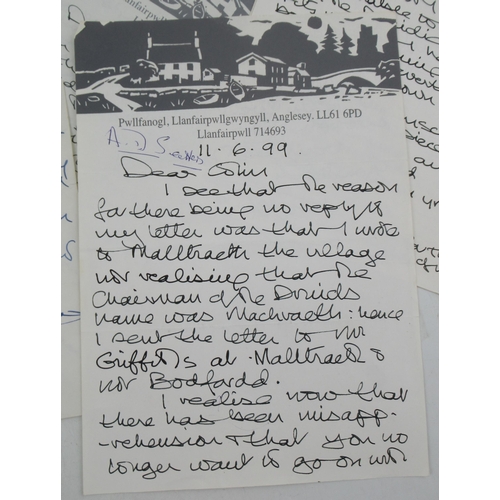 Pwllfanogl, Llanfairpwllgwyngyll, Anglesey. LL61 6PD
Llanfairpwll 714693
A.D.S.
11.6.99.
Dear Colin
I see that the reason
for there being no reply to
my letter was that I wrote
to Malltraeth the village
not realising that the
Chairman of the Druids
name was : hence
I sent the letter to Mr
Griffiths at Malltraeth &
not Bodfordd.
I realise now that
there has been misapp-
rehension & that you no
longer want to go on with